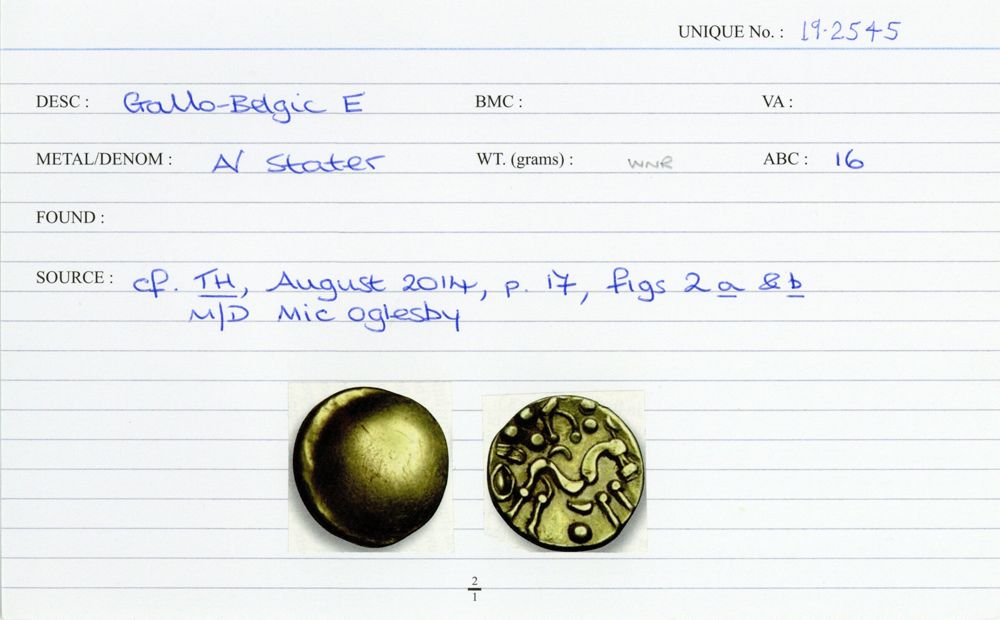 UNIQUE No. : 19.2545
DESC : Gallo-Belgic E BMC : VA :
METAL/DENOM : N Stater WT. (grams) : WNR ABC : 16
FOUND :
SOURCE : cf. TH, August 2014, p. 17, figs 2a & b
M/D Mic Oglesby
2
1